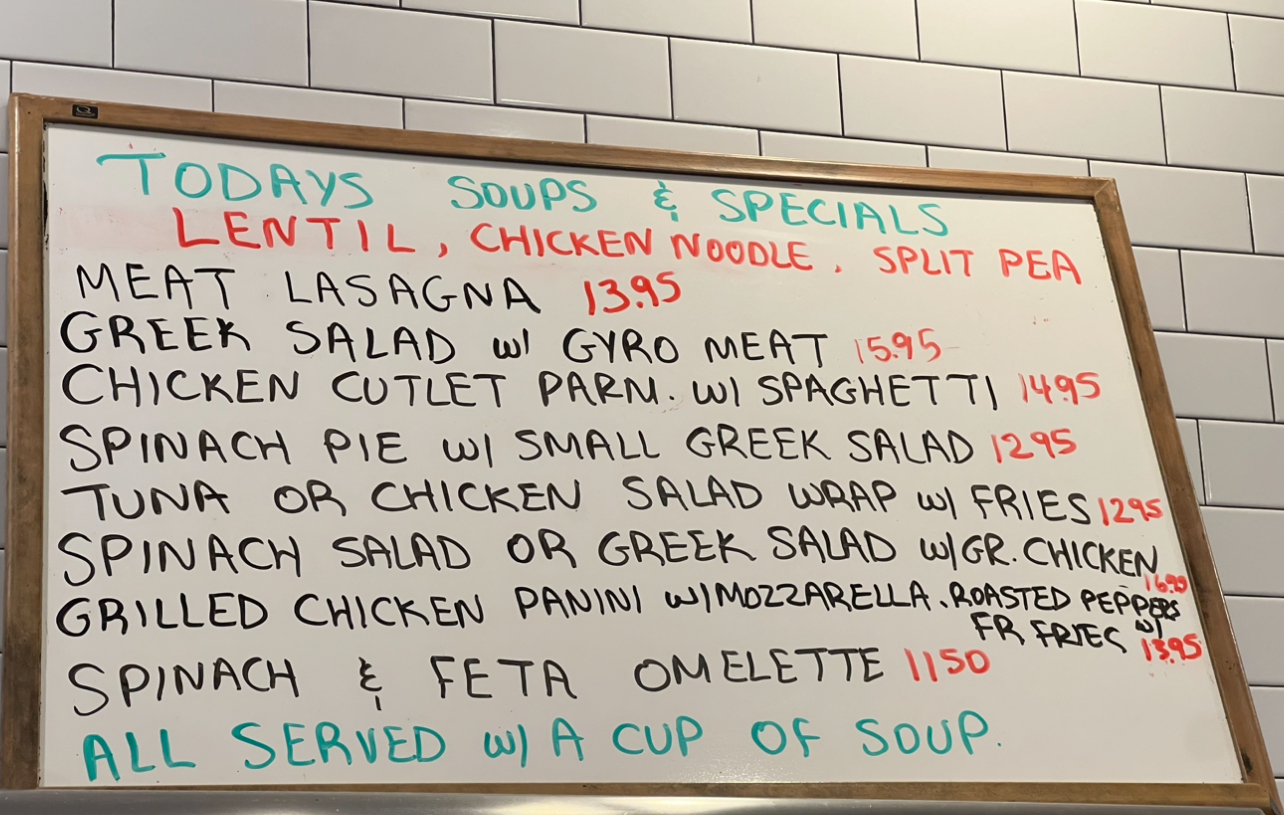 TODAYS SOUPS & SPECIALS
LENTIL, CHICKEN NOODLE, SPLIT PEA
MEAT LASAGNA 13.95
GREEK SALAD w/ GYRO MEAT 15.95
CHICKEN CUTLET PARM. w/ SPAGHETTI 14.95
SPINACH PIE w/ SMALL GREEK SALAD 12.95
TUNA OR CHICKEN SALAD WRAP w/ FRIES 1295
SPINACH SALAD OR GREEK SALAD w/GR. CHICKEN
GRILLED CHICKEN PANINI w/MOZZARELLA. ROASTED PEPPERS
w/
FR FRIES 13.95
SPINACH & FETA OMELETTE 1150
ALL SERVED w/ A CUP OF SOUP.